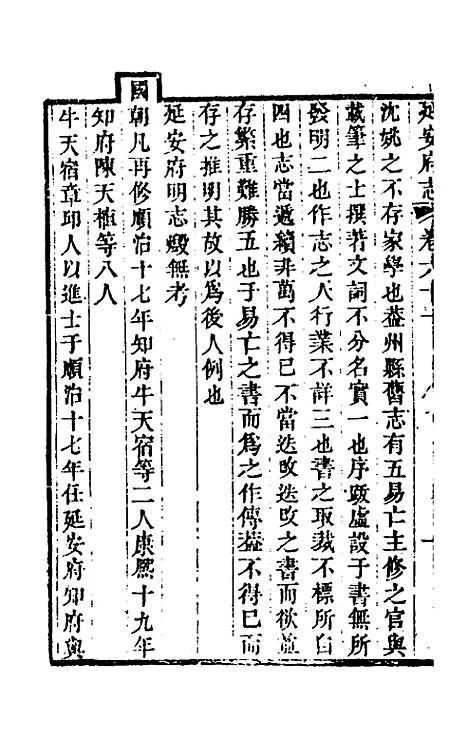 延安府志 卷六十
沈姚之不存家學也蓋州縣舊志有五易亡主修之官與
載筆之士撰著文詞不分名實一也序跋虛設于書無所
發明二也作志之人行業不詳三也書之取裁不標所自
四也志當遞續非萬不得已不當迭改迭改之書而欲並
存繁重難勝五也于易亡之書而為之作傳蓋不得已而
存之推明其故以為後人例也
延安府明志燬無考
國朝凡再修順治十七年知府牛天宿等二人康熙十九年
知府陳天植等八人
牛天宿章邱人以進士于順治十七年任延安府知府與